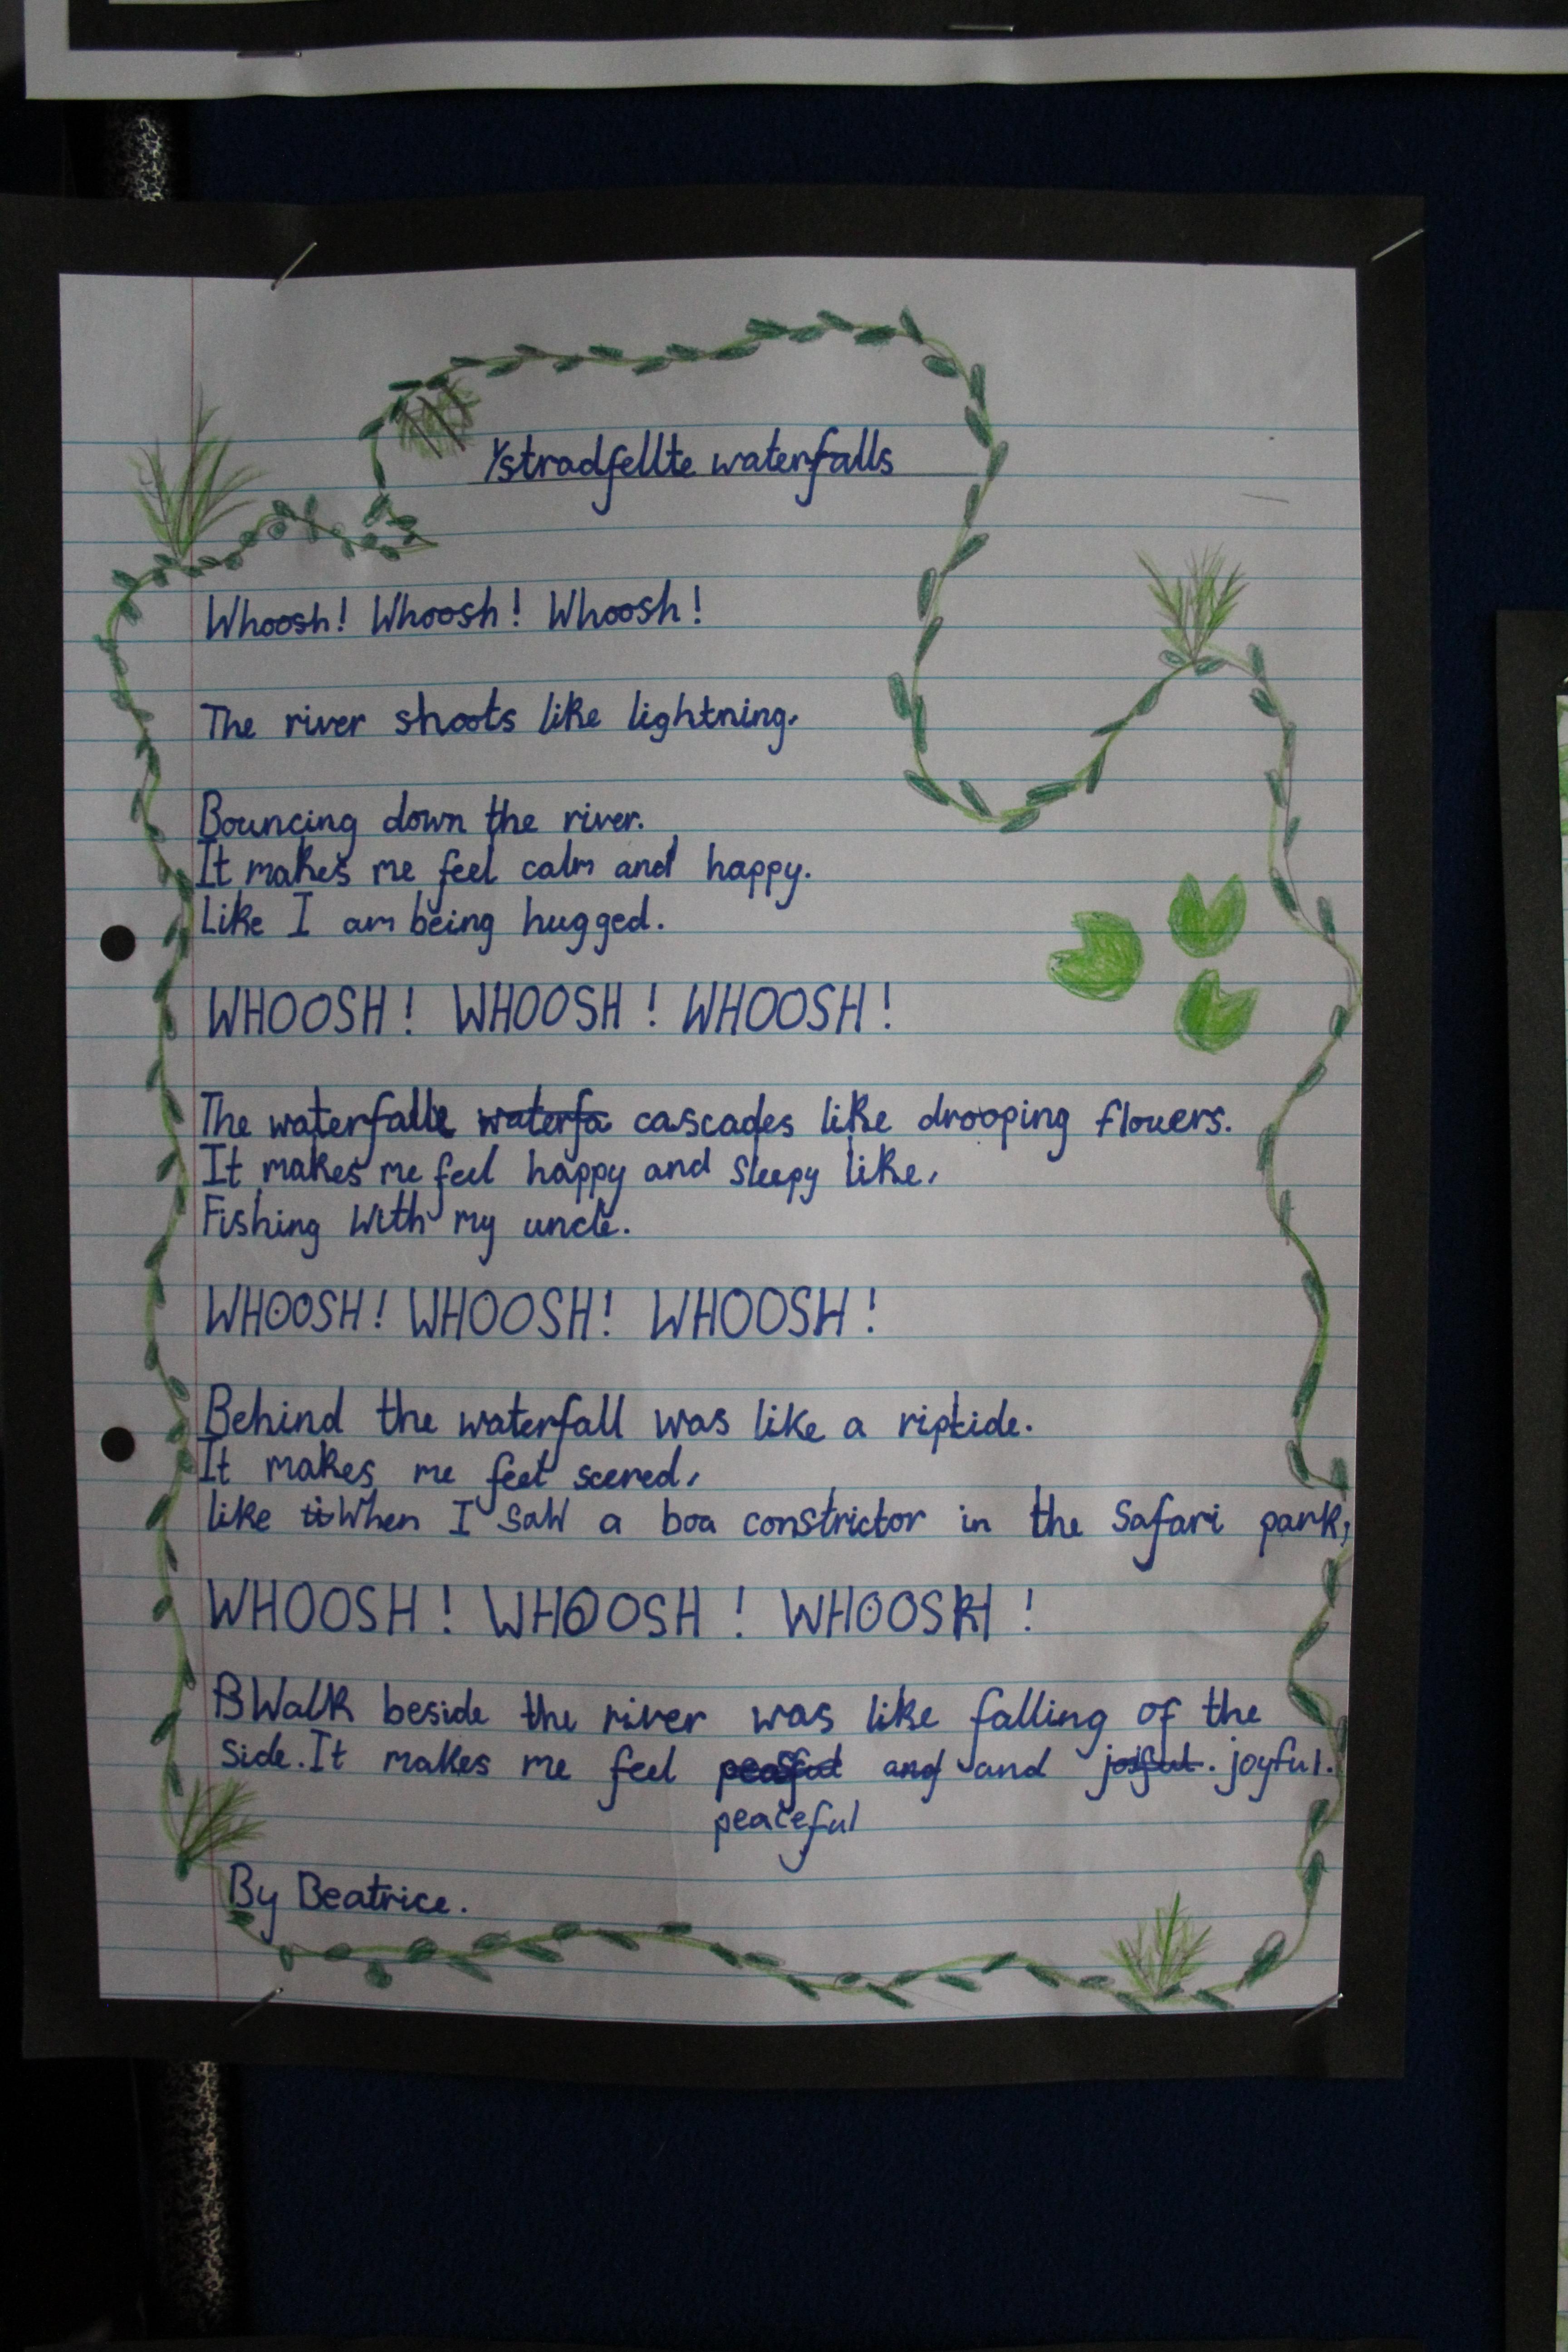 Ystradfellte waterfalls
Whoosh! Whoosh! Whoosh!
The river shoots like lightning.
Bouncing down the river.
It makes me feel calm and happy.
Like I am being hugged.
WHOOSH! WHOOSH! WHOOSH!
The waterfalle waterfa cascades like drooping flowers.
It makes me feel happy and sleepy like,
Fishing with my uncle.
WHOOSH! WHOOSH! WHOOSH!
Behind the waterfall was like a riptide.
It makes me feel scered,
like ti When I saw a boa constrictor in the Safari park,
WHOOSH! WHOOSH! WHOOSH!
B Walk beside the river was like falling of the
side. It makes me feel peasful and and joiful. joyful.
peaceful
By Beatrice.